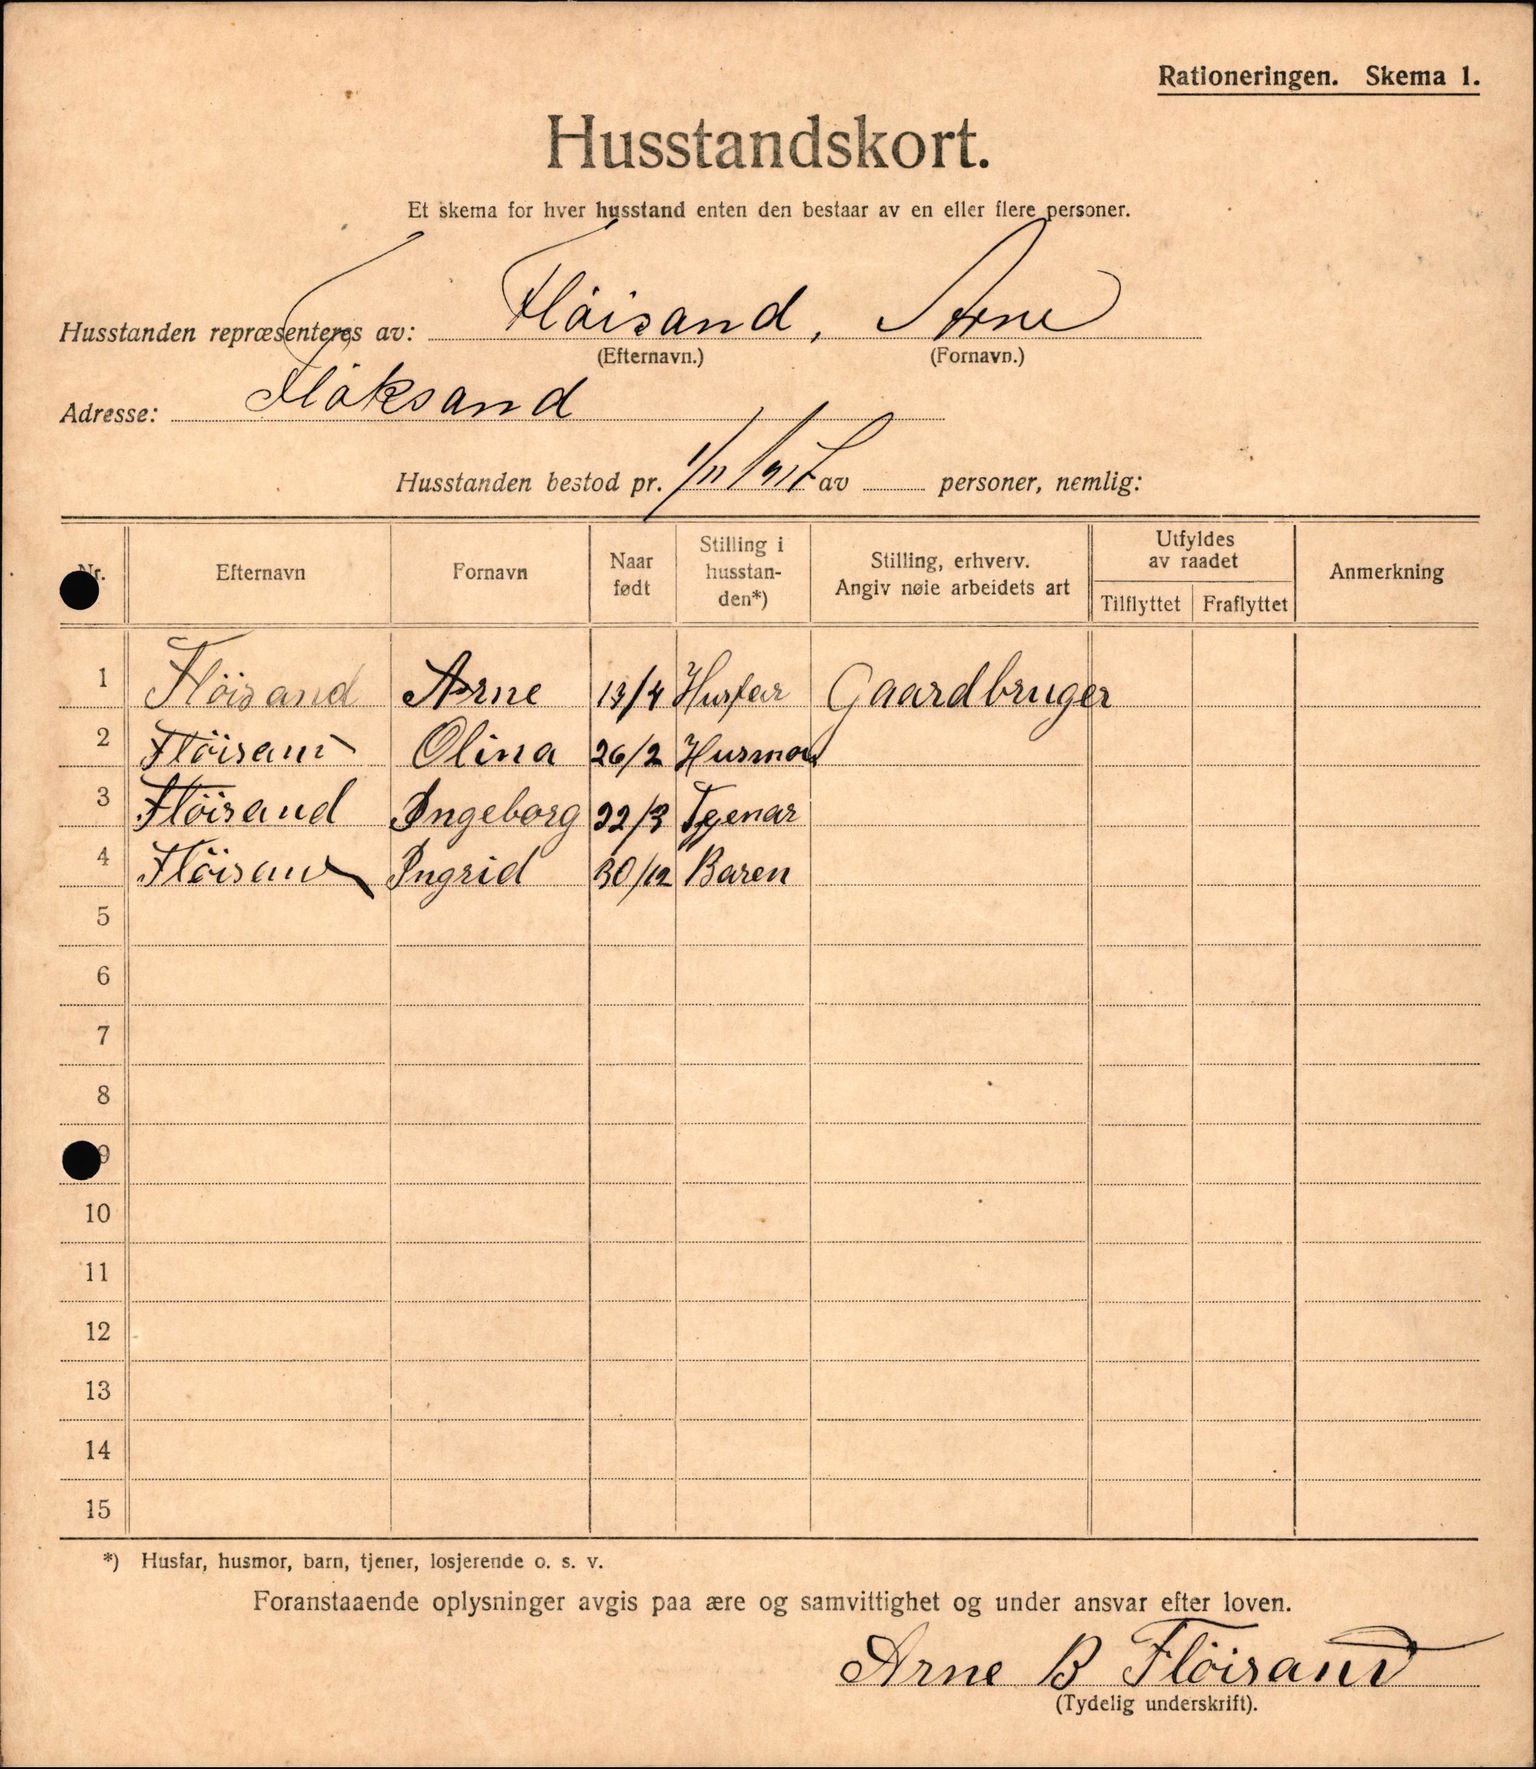 Rationeringen. Skema 1.
Husstandskort.
Et skema for hver husstand enten den bestaar av en eller flere personer.
Husstanden repræsenteres av: Flöisand, Arne
(Efternavn.) (Fornavn.)
Adresse: Flöksand
Husstanden bestod pr. 1/11 1917 av personer, nemlig:
Nr. Efternavn Fornavn Naar født Stilling i husstanden*) Stilling, erhverv. Angiv nøie arbeidets art Utfyldes av raadet Tilflyttet Fraflyttet Anmerkning
1 Flöisand Arne 13/4 Husfar Gaardbruger
2 Flöisand Olina 26/2 Husmor
3 Flöisand Ingeborg 22/3 Tjenar
4 Flöisand Ingrid 30/12 Baren
5
6
7
8
9
10
11
12
13
14
15
*) Husfar, husmor, barn, tjener, losjerende o. s. v.
Foranstaaende oplysninger avgis paa ære og samvittighet og under ansvar efter loven.
Arne B Flöisand
(Tydelig underskrift).